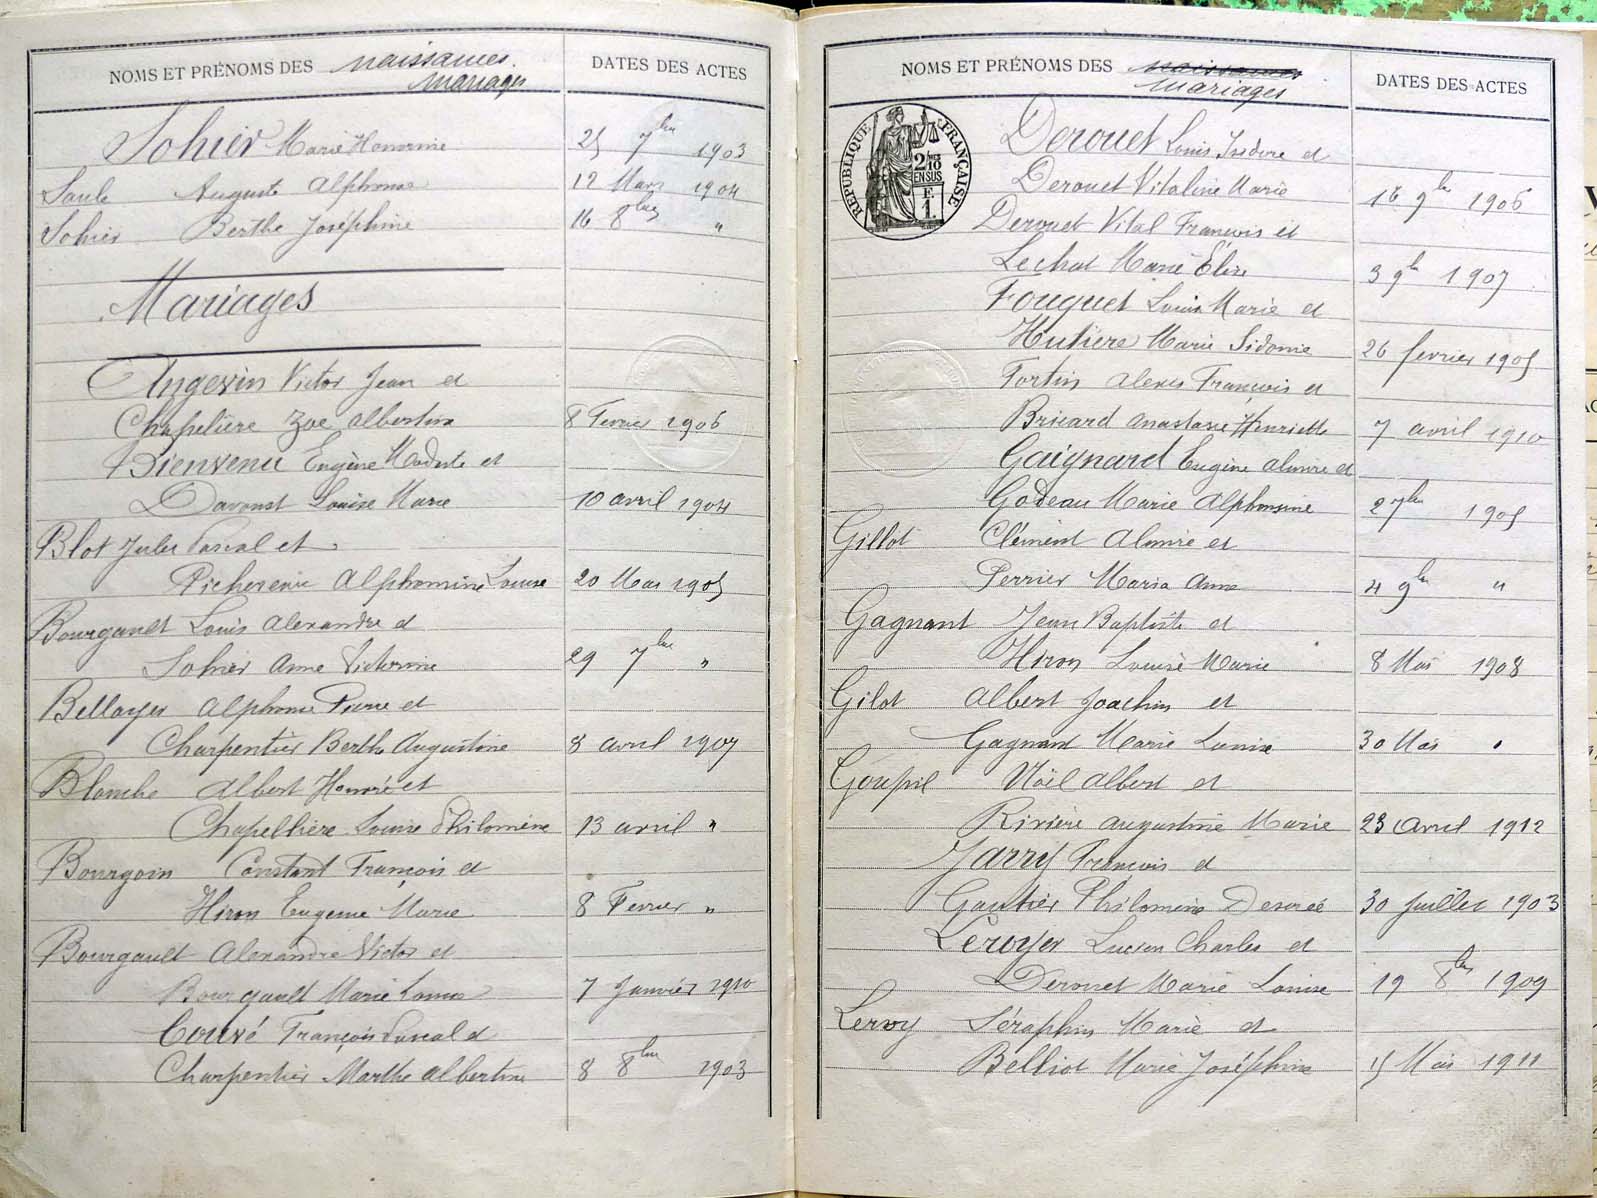 NOMS ET PRÉNOMS DES naissances. DATES DES ACTES
mariages
Sohier Marie Honorine 25 7bre 1903
Saule Auguste Alphonse 12 Mars 1904
Sohier Berthe Joséphine 16 8bre "
Mariages
Angevin Victor Jean et
Chapelière Zoé Albertine 8 Fevrier 1906
Bienvenu Eugène Modeste et
Davoust Louise Marie 10 avril 1904
Blot Jules Pascal et
Picherenu Alphonsine Louise 20 Mai 1905
Bourgault Louis Alexandre et
Sohier Anne Victorine 29 7bre "
Bellayer Alphonse Pierre et
Charpentier Berthe Augustine 8 avril 1907
Blanche Albert Honoré et
Chapellière Louise Philomène 13 avril "
Bourgoin Constant François et
Hiron Eugenie Marie 8 Fevrier "
Bourgault Alexandre Victor et
Bourgault Marie Louise 7 Janvier 1910
Couvé François Pascal et
Charpentier Marthe Albertine 8 8bre 1903
NOMS ET PRÉNOMS DES naissances DATES DES ACTES
mariages
RÉPUBLIQUE FRANÇAISE
2/10
EN SUS
F
1.
Derouet Louis Isidore et
Derouet Vitaline Marie 16 9bre 1906
Derouet Vital François et
Lechat Marie Élise 3 9bre 1907
Fouquet Louis Marie et
Hutière Marie Sidonie 26 fevrier 1905
Fortin Alexis François et
Bricard Anastasie Henriette 7 avril 1910
Gaignard Eugène Almire et
Godeau Marie Alphonsine 2 7bre 1905
Gillot Clément Almire et
Perrier Maria Anne 4 9bre "
Gagnant Jean Baptiste et
Hiron Louise Marie 8 Mai 1908
Gilot Albert Joachim et
Gagnant Marie Louise 30 Mai "
Goupil Noël Albert et
Rivière Augustine Marie 23 Avril 1912
Jarry François et
Gautier Philomène Desirée 30 Juillet 1903
Leroyer Lucien Charles et
Derouet Marie Louise 19 8bre 1909
Leroy Séraphin Marie et
Belliot Marie Joséphine 15 Mai 1911